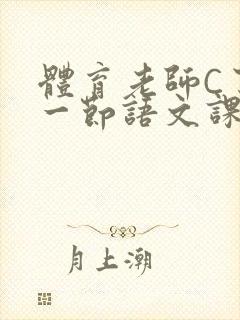 體育老師C
一節語文課
月上潮